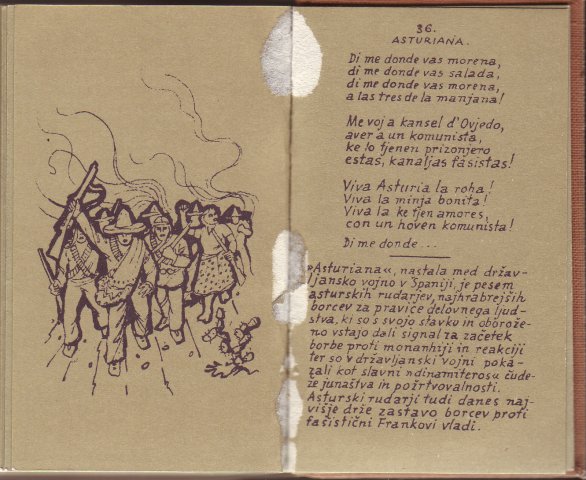 36.
ASTURIANA.
Di me donde vas morena,
di me donde vas salada,
di me donde vas morena,
a las tres de la manjana!
Me voj a kansel d'Ovjedo,
aver a un komunista,
ke lo tjenen prizonjero
estas, kanaljas fašistas!
Viva Asturia la roha!
Viva la minja bonita!
Viva la ke tjen amores,
con un hoven komunista!
Di me donde...
»Asturiana«, nastala med držav-
ljansko vojno v Španiji, je pesem
asturskih rudarjev, najhrabrejših
borcev za pravice delovnega ljud-
stva, ki so s svojo stavko in oborože-
no vstajo dali signal za začetek
borbe proti monarhiji in reakciji
ter so v državljanski vojni poka-
zali kot slavni »dinamiteros« čude-
že junaštva in požrtvovalnosti.
Asturski rudarji tudi danes naj-
višje drže zastavo borcev proti
fašistični Frankovi vladi.